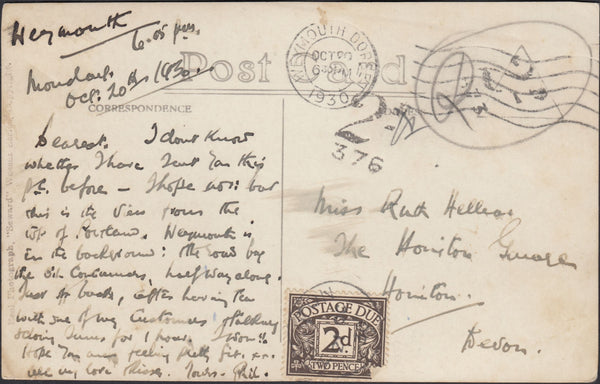 Weymouth
6.05 pm.
Monday
Oct. 20th 1930.
Post Card
CORRESPONDENCE
Real Photograph, "Seward"
WEYMOUTH DORSET
OCT 20
6 PM
1930
2d
376
Dearest. I dont know
whether I have sent you this
p.c. before – I hope not: but
this is the view from the
top of Portland. Weymouth is
in the background: the road by
the Oil Containers, half way along.
Just back, after having tea
with one of my Customers & talking
1 hour. I won't
Hope you are feeling pretty fit. x.x.
all my love & kisses. Yours. Phil.
Miss Ruth Hellier
The Honiton
Honiton.
Devon.
POSTAGE DUE
2d.
TWO PENCE